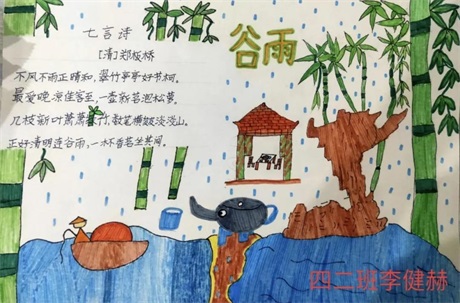 七言诗
[清]郑板桥
不风不雨正晴和，翠竹亭亭好节柯。
最爱晚凉佳客至，一壶新茗泡松萝。
几枝新叶萧萧竹，数笔横皴淡淡山。
正好清明连谷雨，一杯香茗坐其间。
谷雨
四二班李健赫